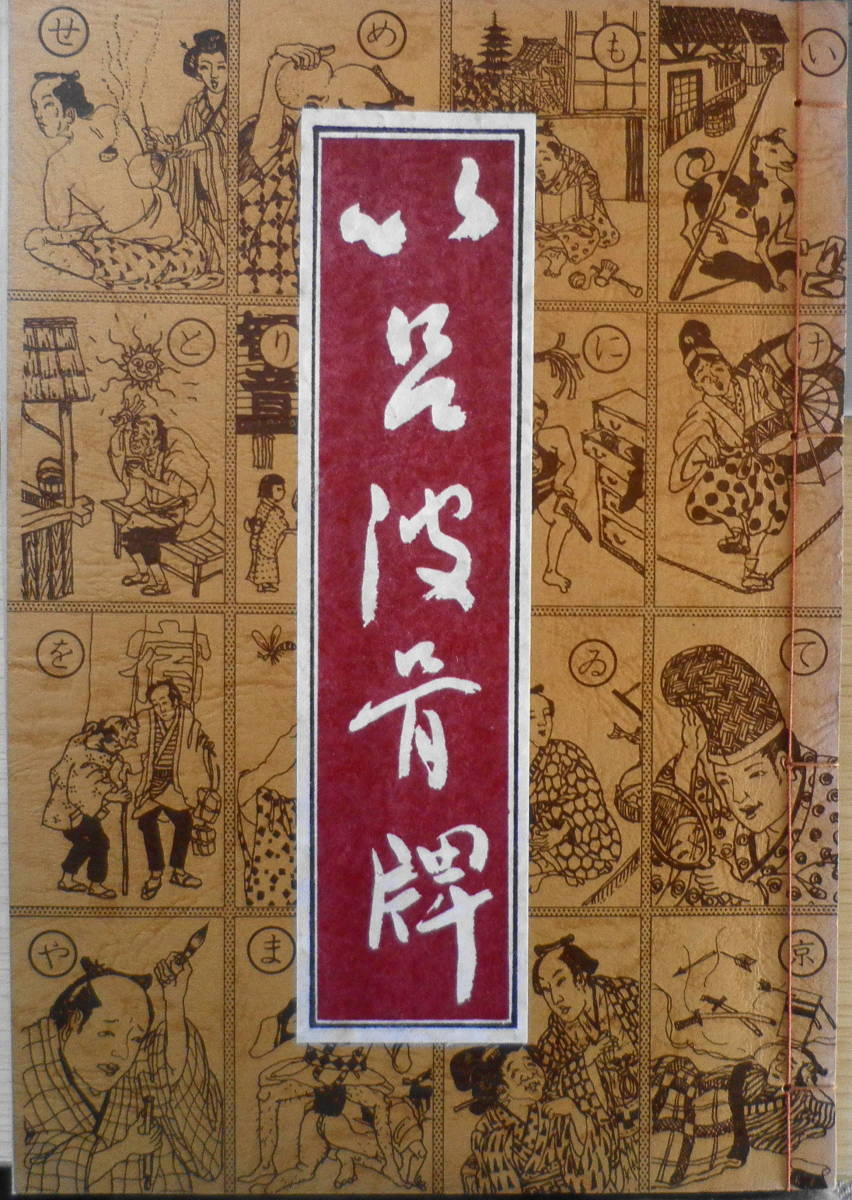 以呂波骨牌
い
も
め
せ
け
に
り
音
と
て
ゐ
を
京
ま
や